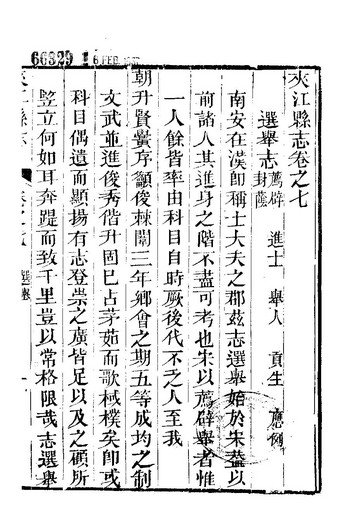 66829 1 6 FEB
夾江縣志卷之七
選舉志 薦辟 進士 舉人 貢生 應例
封蔭
南安在漢即稱士大夫之郡茲志選舉始於宋葢以
前諸人其進身之階不盡可考也宋以薦辟舉者惟
一人餘皆率由科目自時厥後代不乏人至我
朝升賢黌序籲俊棘闈三年鄉會之期五等成均之制
文武並進俊秀偕升固已占茅茹而歌棫樸矣即或
科目偶遺而顯揚有志登崇之廣皆足以及之顧所
竪立何如耳奔踶而致千里豈以常格限哉志選舉
夾江縣志
選舉
一